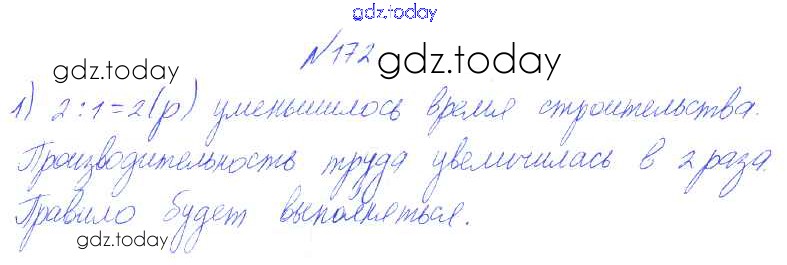 gdz.today
№172
gdz.today gdz.today
1) 2:1=2(р) уменьшилось время строительства.
Производительность труда увеличилась в 2 раза.
Правило будет выполняться.
gdz.today gdz.today